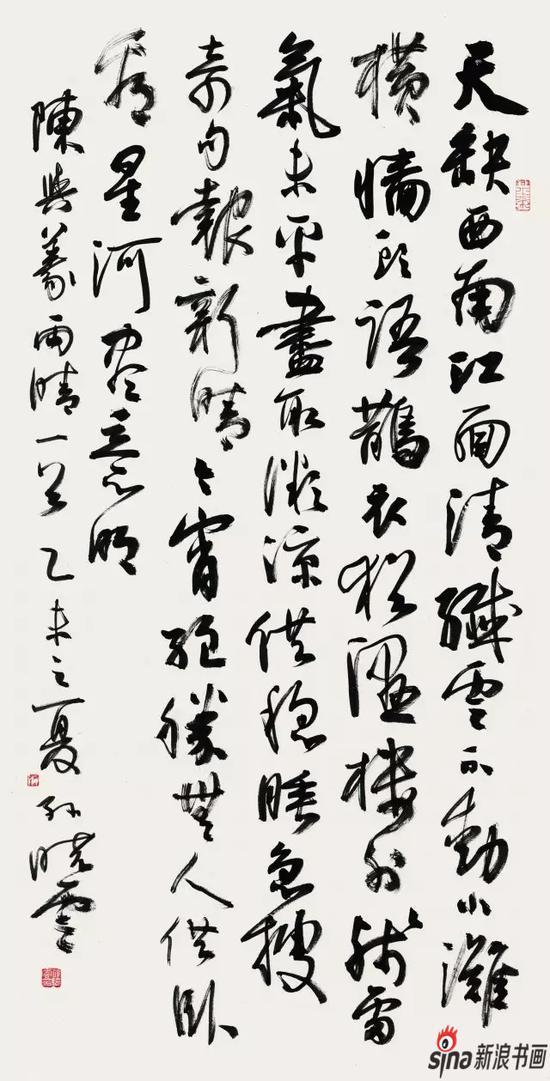 天缺西南江面清纖雲不動小灘
橫墻頭語鵲衣猶溼樓外殘雷
氣未平盡取微涼供穩睡急搜
奇句報新晴今宵絕勝無人供卧
看星河盡意明
陳與義雨晴一首乙未之夏孫曉雲
sina新浪书画